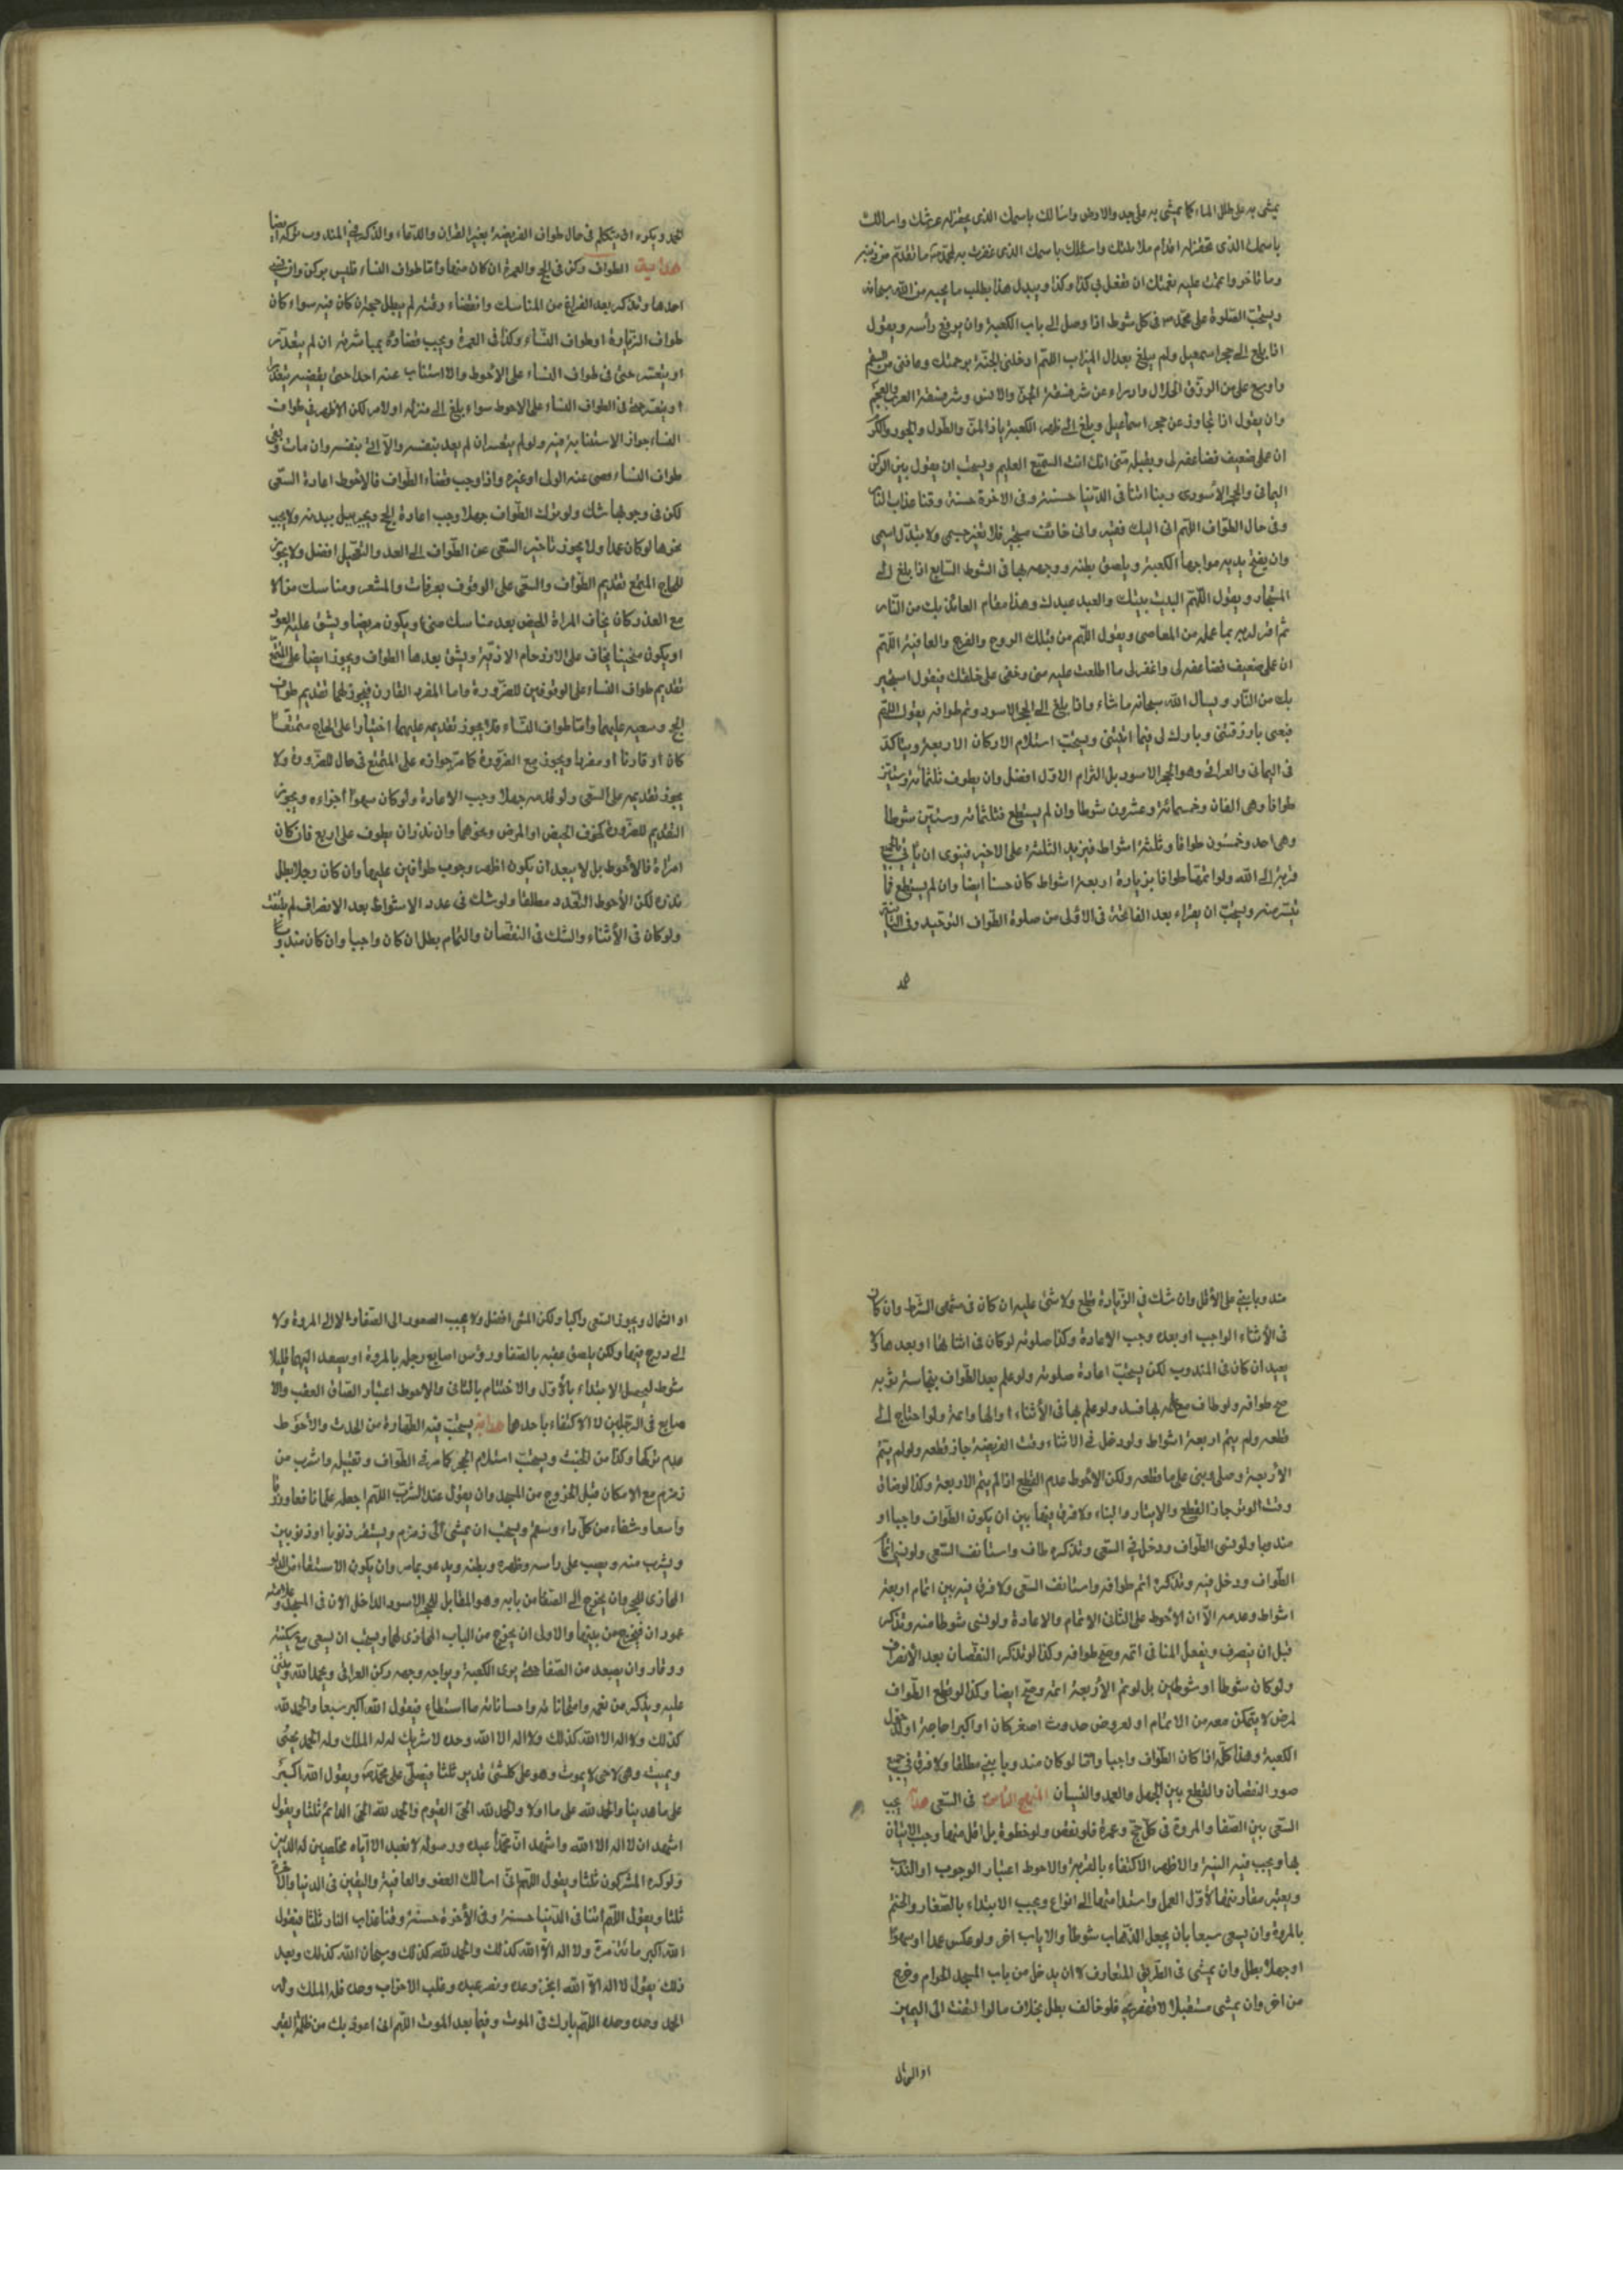 يمشى به على طلل الماء كما يمشى به على جدد الارض واسالك باسمك الذى يهتز له عرشك واسالك
باسمك الذى تهتز له اقدام ملائكتك واسئلك باسمك الذى غفرت به لمحمد ص ما تقدم من ذنبه
وما تاخر واتممت عليه نعمتك ان تفعل بى كذا وكذا ويبدل هذا بطلب ما يحبه من الله سبحانه
ويستحب الصلوة على محمد ص فى كل شوط اذا وصل الى باب الكعبة وان يرفع رأسه ويقول
اذا بلغ الى حجر اسمعيل ولم يبلغ بعد الى الميزاب اللهم ادخلنى الجنة برحمتك وعافنى من السقم
واوسع على من الرزق الحلال وادرء عنى شر فسقة الجن والانس وشر فسقة العرب والعجم
وان يقول اذا تجاوز عن حجر اسماعيل وبلغ الى ظهر الكعبة يا ذا المن والطول والجود والكرم
ان عملى ضعيف فضاعفه لى وتقبله منى انك انت السميع العليم ويستحب ان يقول بين الركن
اليمانى والحجر الأسود ربنا اتنا فى الدنيا حسنة وفى الاخرة حسنة وقنا عذاب النار
وفى حال الطواف اللهم انى اليك فقير وانى خائف مستجير فلا تغير جسمى ولا تبدل اسمى
وان يفتح يديه مواجها الكعبة ويلصق بطنه ووجهه بها فى الشوط السابع اذا بلغ الى
المستجار ويقول اللهم البيت بيتك والعبد عبدك وهذا مقام العائذ بك من النار
ثم اقر لديه بما عمله من المعاصى ويقول اللهم من قبلك الروح والفرج والعافية اللهم
ان عملى ضعيف فضاعفه لى واغفر لى ما اطلعت عليه منى وخفى على خلقك فيقول استجير
بك من النار ويسال الله سبحانه ما شاء واذا بلغ الى الحجر الاسود وتم طوافه يقول اللهم
قنعنى بما رزقتنى وبارك لى فيما اتيتنى ويستحب استلام الاركان الاربعة ويتاكد
فى اليمانى والعراقى وهو الحجر الاسود بل التزام الاول افضل وان يطوف ثلثمائة وستين
طوافا وهى الفان وخمسمائة وعشرون شوطا وان لم يستطع فثلثمائة وستين شوطا
وهى احد وخمسون طوافا وثلثة اشواط فيزيد الثلثة على الاخير فينوى ان ياتى بالجميع
قربة الى الله ولو اتمها طوافا بزيادة اربعة اشواط كان حسنا ايضا وان لم يستطع فما
تيسر منه ويستحب ان يقراء بعد الفاتحة فى الاولى من صلوة الطواف التوحيد وفى الثانية
الجحد ويكره ان يتكلم فى حال طواف الفريضة بغير القران والدعاء والذكر بل فى المندوب تركه ايضا
هداية الطواف ركن فى الحج والعمرة ان كان منهما وأما طواف النساء فليس بركن وان نسى
احدها وتذكر بعد الفراغ من المناسك وانقضاء وقته لم يبطل حجه ان كان فيه سواء كان
طواف الزيارة او طواف النساء وكذا فى العمرة ويجب قضاؤه بمباشرته ان لم يتعذر
او يتعسر حتى فى طواف النساء على الاحوط والا استناب عنه احدا حتى يقضيه بتعذر
او يتعسر جمعا فى الطواف النساء على الاحوط سواء بلغ الى منزله اولا لكن الاظهر فى طواف
النساء جواز الاستنابة فيه ولو لم يتعسر ان لم يعد بنفسه والا اتى بنفسه وان مات وبقى
طواف النساء قضى عنه الولى او غيره واذا وجب قضاء الطواف فالاحوط اعادة السعى
لكن فى وجوبها شك ولو ترك الطواف جهلا وجب اعادة الحج ويجبر ببدنة ولا يجب
نحرها لو كان عمدا ولا يجوز تاخير السعى عن الطواف الى الغد والتعجيل افضل ولا يجوز
للحاج المتمتع تقديم الطواف والسعى على الوقوف بعرفات والمشعر ومناسك منى الا
مع العذر كان يخاف المراة الحيض بعد مناسك منى او يكون مريضا ويشق عليه العود
او يكون شيخا يخاف على الازدحام الاذية ويشق بعدها الطواف ويجوز ايضا على المتمتع
تقديم طواف النساء على الوقوفين للضرورة واما المفرد القارن فيجوز لهما تقديم طواف
الحج وسعيه عليهما وأما طواف النساء فلا يجوز تقديمه عليهما اختيارا على الحاج متمتعا
كان او قارنا او مفردا ويجوز مع الضرورة كما مر جوازه على المتمتع فى حال الضرورة ولا
يجوز تقديمه على السعى ولو قدمه جهلا وجب الاعادة ولو كان سهوا أجزاءه ويجوز
التقديم للضرورة كخوف الحيض او المرض ونحوهما وان نذر ان يطوف على اربع فان كان
امراة فالأحوط بل لا يبعد ان يكون اظهر وجوب طوافين عليها وان كان رجلا بطل
نذره لكن الأحوط التعدد مطلقا ولو شك فى عدد الاشواط بعد الانصراف لم يلتفت
ولو كان فى الأثناء والشك فى النقصان والتمام بطل ان كان واجبا وان كان مندوبا
مندوبا بنى على الأقل وان شك فى الزيادة قطع ولا شئ عليه ان كان فى منتهى الشوط وان كان
فى الأثناء الواجب او بعده وجب الاعادة وكذا صلوته لو كان فى اثنائها او بعدها لا
يعيد ان كان فى المندوب لكن يستحب اعادة صلوته ولو علم بعد الطواف بنجاسة ثوبه
صح طوافه ولو طاف مع علمه بها فسد ولو علم بها فى الأثناء ازالها واتمه ولو احتاج الى
قطعه ولم يتم اربعة اشواط ولو دخل فى الاثناء وقت الفريضة جاز قطعه ولو لم يتم
الأربعة وصلى وبنى على ما قطعه ولكن الأحوط عدم القطع اذا لم يتم الاربعة وكذا لو ضاق
وقت الوتر جاز القطع والايتار والبناء ولا فرق فيهما بين ان يكون الطواف واجبا او
مندوبا ولو نسى الطواف ودخل فى السعى وتذكره طاف واستانف السعى ولو نسى اتمام
الطواف ودخل فيه وتذكره اتم طوافه واستانف السعى ولا فرق فيه بين اتمام اربعة
اشواط وعدمه الا ان الأحوط على الثانى الاتمام والاعادة ولو نسى شوطا منه وتذكر
قبل ان ينصرف ويفعل المنافى اتمه وصح طوافه وكذا لو تذكر النقصان بعد الأنصراف
ولو كان شوطا او شوطين بل لو تم الأربعة اتمه وصح ايضا وكذا لو قطع الطواف
لمرض لا يتمكن معه من الاتمام او لعروض حدوث اصغر كان او اكبر او حاجة او لدخول
الكعبة وهذا كله اذا كان الطواف واجبا واما لو كان مندوبا بنى مطلقا ولا فرق فى جميع
صور النقصان والقطع بين الجهل والعمد والنسيان المنهج الثامن فى السعى هداية يجب
السعى بين الصفا والمروة فى كل حج وعمرة فلو نقص ولو خطوة بل اقل منها وجب الاتيان
بها ويجب فيه النية والاظهر الاكتفاء بالقربة والاحوط اعتبار الوجوب او الندب
ويعتبر مقارنتها لأول العمل واستدامتها الى انواع ويجب الابتداء بالصفا والختم
بالمروة وان يسعى سبعا بان يجعل الذهاب شوطا والاياب اخر ولو عكس عمدا او سهوا
او جهلا بطل وان يمشى فى الطريق المتعارف لا ان يدخل من باب المسجد الحرام وخرج
من اخر وان يمشى مستقبلا لا قهقرى فلو خالف بطل بخلاف ما لو التفت الى اليمين
او الشمال
او الشمال ويجوز السعى راكبا ولكن المشى افضل ولا يجب الصعود الى الصفا ولا الى المروة ولا
الى درج فيهما ولكن يلصق عقبه بالصفا ورؤس اصابع رجله بالمروة او يصعد اليهما قليلا
شوط ليحصل الابتداء بالأول والاختتام بالثانى والاحوط اعتبار الصاق العقب والا
صابع فى الرجلين لا الاكتفاء باحدها هداية يستحب فيه الطهارة من الحدث والأحوط
عدم تركها وكذا من الخبث ويستحب استلام الحجر كما مر فى الطواف وتقبيله واشرب من
زمزم مع الامكان قبل الخروج من المسجد وان يقول عند الشرب اللهم اجعله علما نافعا ورزقا
واسعا وشفاء من كل داء وسقم ويستحب ان يمشى الى زمزم ويستقى ذنوبا او ذنوبين
ويشرب منه ويصب على راسه وظهره وبطنه ويدعو بما مر وان يكون الاستقاء من الدلو
المحاذى للحجر وان يخرج الى الصفا من بابه وهو المقابل للحجر الاسود الداخل الان فى المسجد وعلامته
عمودان فيخرج من بينهما والاولى ان يخرج من الباب المحاذى لهما ويستحب ان يسعى مع سكينة
ووقار وان يصعد من الصفا حتى يرى الكعبة ويواجه وجهه ركن العراقى ويحمد الله ويثنى
عليه ويذكر من نعمه وامتنانا له واحساناته ما استطاع فيقول الله اكبر سبعا والحمد لله
كذلك ولا اله الا الله كذلك ولا اله الا الله وحده لا شريك له له الملك وله الحمد يحيى
ويميت وهو حى لا يموت وهو على كل شئ قدير ثلثا فيصلى على محمد ص ويقول الله اكبر
على ما هدينا والحمد لله على ما اولانا والحمد لله الحى القيوم والحمد لله الحى الدائم ثلثا ويقول
اشهد ان لا اله الا الله واشهد ان محمدا عبده ورسوله لا نعبد الا اياه مخلصين له الدين
ولو كره المشركون ثلثا ويقول اللهم انى اسالك العفو والعافية واليقين فى الدنيا والاخرة
ثلثا ويقول اللهم اتنا فى الدنيا حسنة وفى الأخرة حسنة وقنا عذاب النار ثلثا فيقول
الله اكبر مائة مرة ولا اله الا الله كذلك والحمد لله كذلك وسبحان الله كذلك وبعد
ذلك يقول لا اله الا الله انجز وعده ونصر عبده وغلب الاحزاب وحده فله الملك وله
الحمد وحده وحده اللهم بارك فى الموت وفيما بعد الموت اللهم انى اعوذ بك من ظلمة القبر